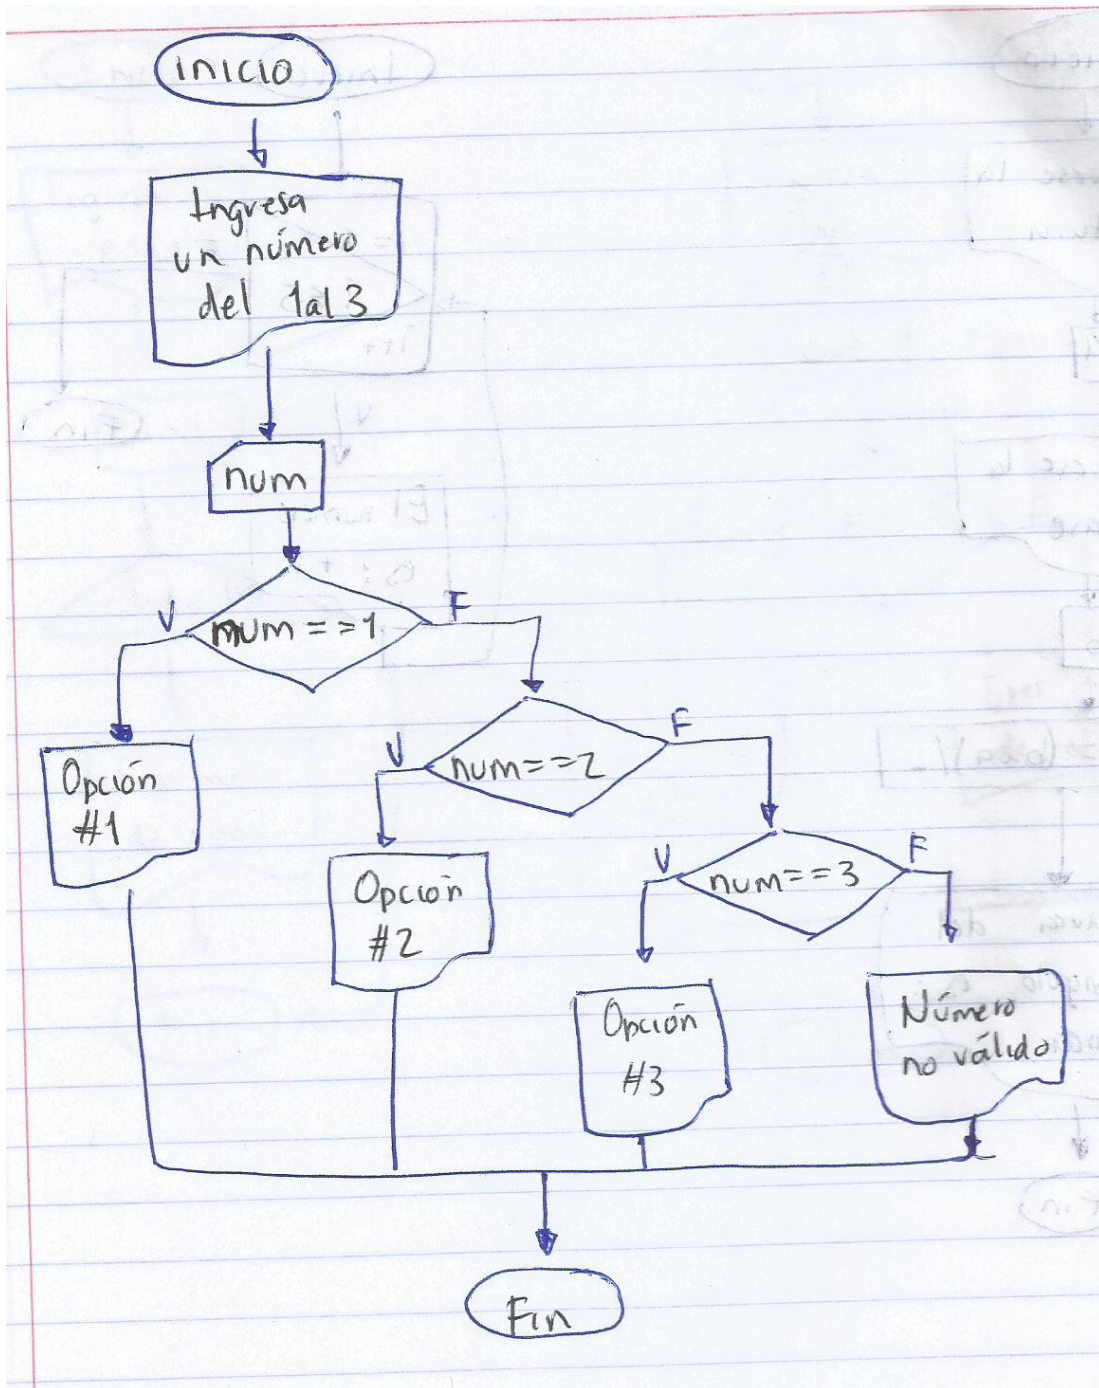 Inicio
Ingresa
un número
del 1 al 3
num
num == 1
V
F
num == 2
V
F
Opción
#1
num == 3
V
F
Opción
#2
Opción
#3
Número
no válido
Fin